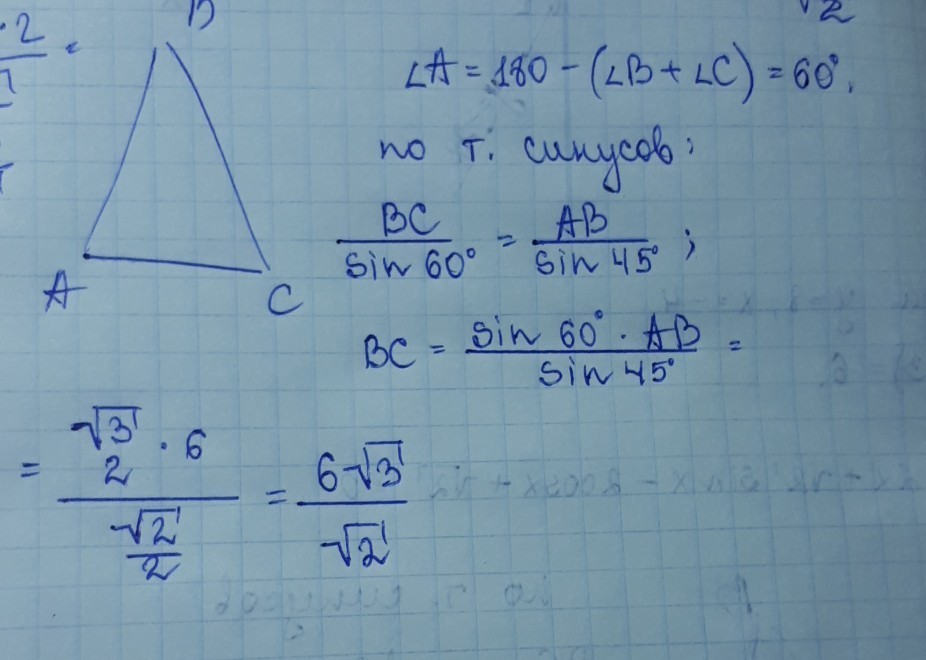 B
∠A = 180 - (∠B + ∠C) = 60°.
по т. синусов:
BC / sin 60° = AB / sin 45° ;
A
C
BC = sin 60° · AB / sin 45° =
= √3 / 2 · 6 / √2 / 2 = 6√3 / √2